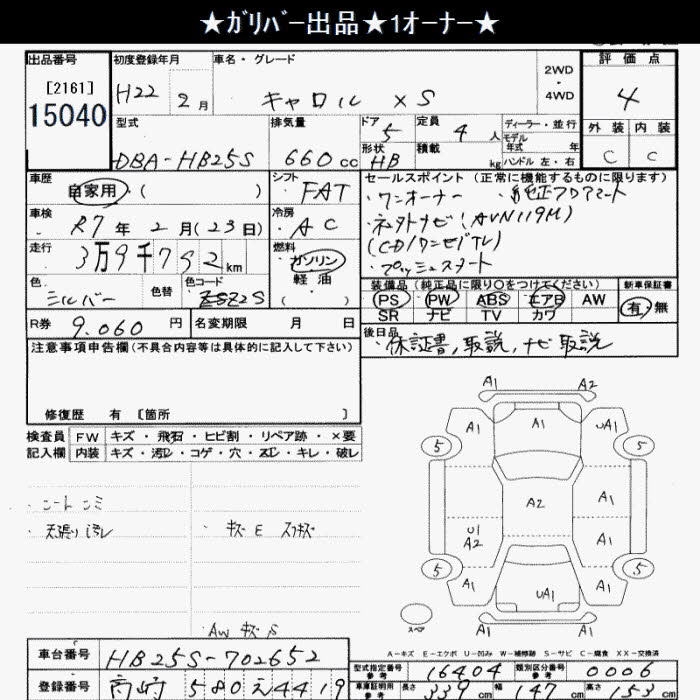 ★ｶﾞﾘﾊﾞｰ出品★1オーナー★
出品番号
[2161]
15040
初度登録年月
H22 2月
車名・グレード
キャロル XS
2WD・4WD
評価点
4
外装 内装
C C
型式
DBA-HB25S
排気量
660cc
ドア 5
形状 HB
定員 4人
積載 kg
ディーラー・並行
モデル年式 年
ハンドル 左・右
車歴
自家用・( )
シフト
FAT
車検
R7年 2月(23日)
冷房
AC
走行
3万9千792km
燃料
ガソリン
軽油
( ・ )
色
シルバー
色替
色コード
ZSZ2S
セールスポイント (正常に機能するものに限ります)
・ワンオーナー ・純正フロアマート
・ネオトナビ(AVN119M)
(CD/ワンセグTV)
・プッシュスタート
装備品 (純正品に限り○をつけてください)
新車保証書
PS PW ABS エアB AW
SR ナビ TV カワ
有・無
R券 9.060円
名変期限 月 日
後日品
・保証書,取説,ナビ取説
注意事項申告欄(不具合内容等は具体的に記入して下さい)
修復歴 有 [箇所 ]
検査員記入欄
FW キズ・飛石・ヒビ割・リペア跡・×要
内装 キズ・汚レ・コゲ・穴・スレ・キレ・破レ
・シートシミ
・天張り汚レ
・キズE スリキズ
AWキズS
A1 A2
A1 A1 UA1
5 5
A2 A1
U1
A2 A1
5 5
A1 UA1 A1
A1 A1
スペア
A－キズ E－エクボ U－凹み W－補修跡 S－サビ C－腐食 XX－交換済
車台番号
HB25S-702652
登録番号
高崎 580 え 4419
型式指定番号参考
16404
類別区分番号参考
0006
車庫証明用参考
長さ 339cm 幅 147cm 高さ 153cm